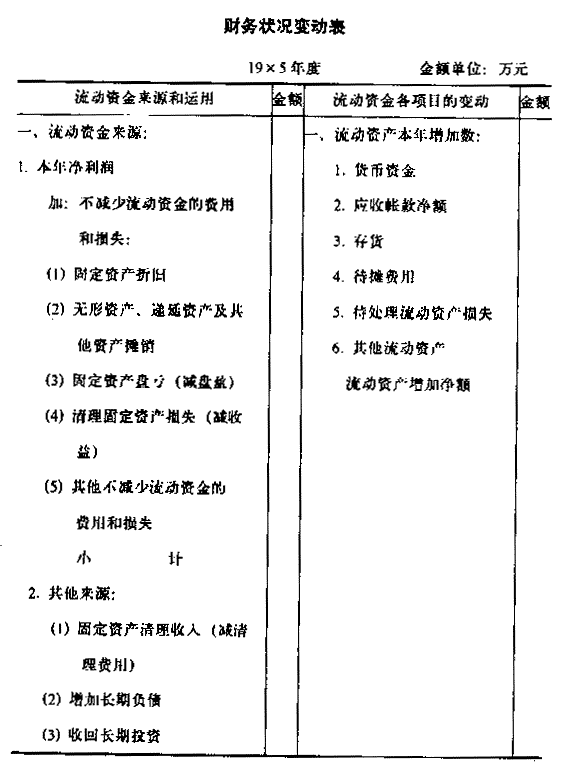 财务状况变动表
19×5年度 金额单位：万元
流动资金来源和运用 金额 流动资金各项目的变动 金额
一、流动资金来源：
1. 本年净利润
加：不减少流动资金的费用
和损失：
(1) 固定资产折旧
(2) 无形资产、递延资产及其
他资产摊销
(3) 固定资产盘亏（减盘盈）
(4) 清理固定资产损失（减收
益）
(5) 其他不减少流动资金的
费用和损失
小 计
2. 其他来源：
(1) 固定资产清理收入（减清
理费用）
(2) 增加长期负债
(3) 收回长期投资
一、流动资产本年增加数：
1. 货币资金
2. 应收帐款净额
3. 存货
4. 待摊费用
5. 待处理流动资产损失
6. 其他流动资产
流动资产增加净额